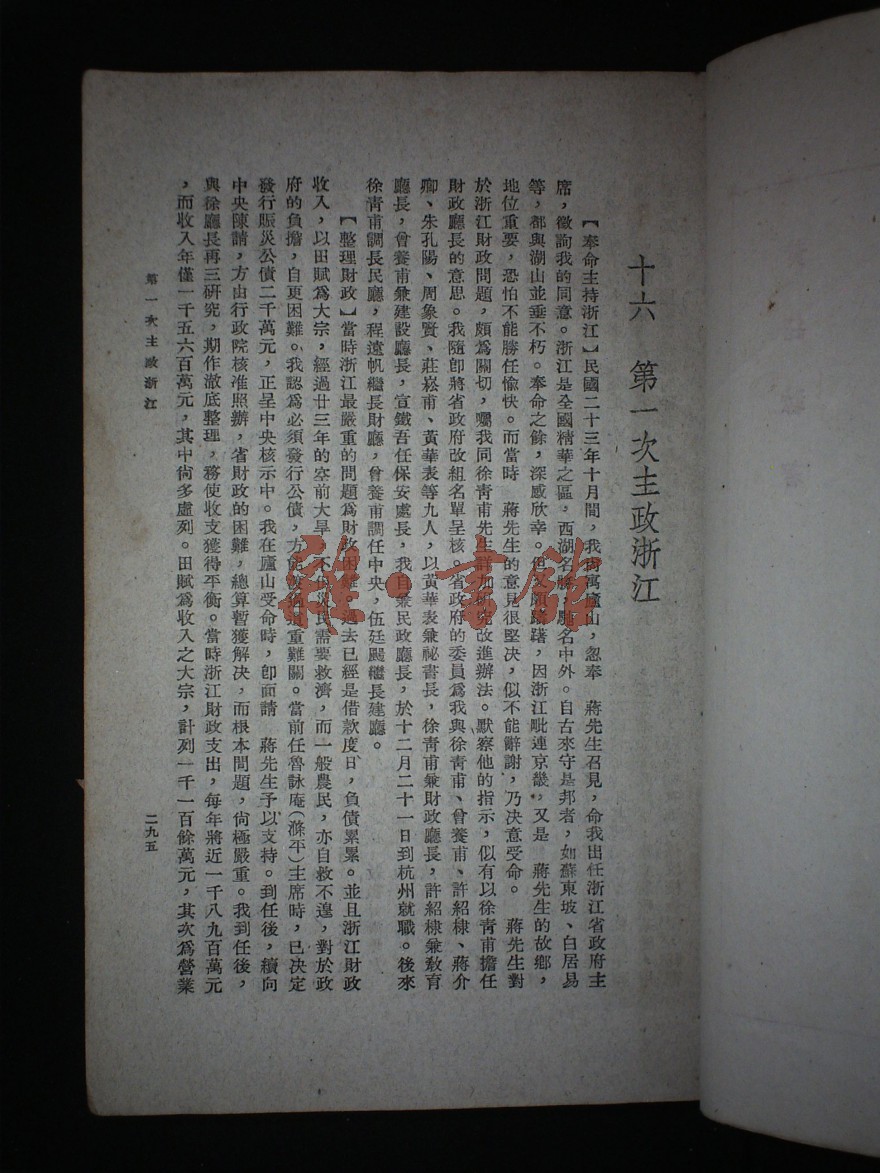 十六　第一次主政浙江
【奉命主持浙江】民國二十三年十月間，我尚寓廬山，忽奉　蔣先生召見，命我出任浙江省政府主
席，徵詢我的同意。浙江是全國精華之區，西湖名勝，馳名中外。自古來守是邦者，如蘇東坡、白居易
等，都與湖山並垂不朽。奉命之餘，深感欣幸。但又頗躊躇，因浙江毗連京畿，又是　蔣先生的故鄉，
地位重要，恐怕不能勝任愉快。而當時　蔣先生的意見很堅決，似不能辭謝，乃決意受命。　蔣先生對
於浙江財政問題，頗為關切，囑我同徐青甫先生詳加研究改進辦法。默察他的指示，似有以徐青甫擔任
財政廳長的意思。我隨卽將省政府改組名單呈核。省政府的委員爲我與徐青甫、曾養甫、許紹棣、蔣介
卿、朱孔陽、周象賢、莊崧甫、黃華表等九人，以黃華表兼祕書長，徐青甫兼財政廳長，許紹棣兼敎育
廳長，曾養甫兼建設廳長，宣鐵吾任保安處長，我自兼民政廳長，於十二月二十一日到杭州就職。後來
徐青甫調長民廳，程遠帆繼長財廳，曾養甫調任中央，伍廷颺繼長建廳。
【整理財政】當時浙江最嚴重的問題爲財政困難。過去已經是借款度日，負債累累。並且浙江財政
收入，以田賦爲大宗，經過廿三年的空前大旱，不但災民需要救濟，而一般農民，亦自救不遑，對於政
府的負擔，自更困難。我認爲必須發行公債，方能渡過重難關。當前任魯詠庵(滌平)主席時，已決定
發行賑災公債二千萬元，正呈中央核示中。我在廬山受命時，卽面請　蔣先生予以支持。到任後，續向
中央陳請，方由行政院核准照辦，省財政的困難，總算暫獲解決，而根本問題，尙極嚴重。我到任後，
與徐廳長再三研究，期作澈底整理，務使收支獲得平衡。當時浙江財政支出，每年將近一千八九百萬元
，而收入年僅一千五六百萬元，其中尙多虛列。田賦爲收入之大宗，計列一千一百餘萬元，其次爲營業
第一次主政浙江
二九五
雅·書館